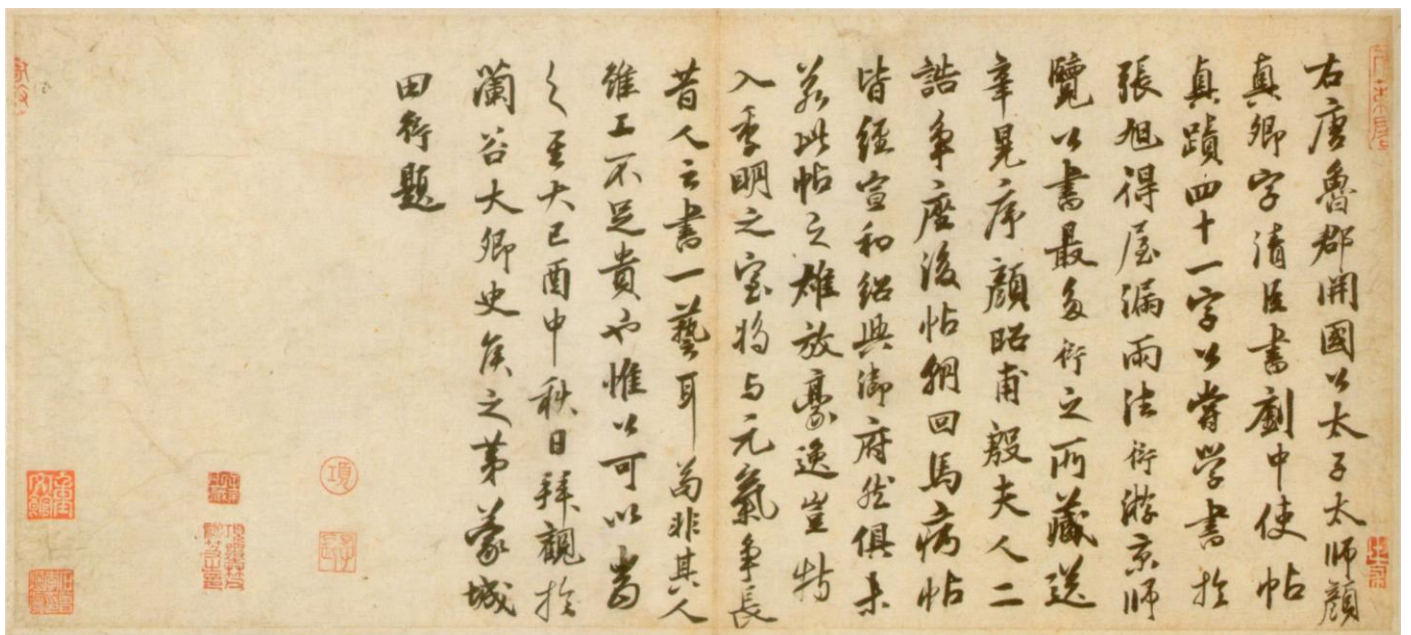 右唐魯郡開國公太子太師顏
真卿字清臣書劉中使帖
真蹟四十一字公嘗学書於
張旭得屋漏雨法衍游京師
覽公書最多衍之所藏送
辛晃序顏昭甫殷夫人二
誥爭座後帖綱回馬病帖
皆經宣和紹興御府然俱未
若此帖之雄放豪逸豈特
入季明之室将与元氣爭長
昔人云書一藝耳苟非其人
雖工不足貴也惟公可以當
之至大己酉中秋日拜觀於
蘭谷大卿史侯之第蒙城
田衍題
項